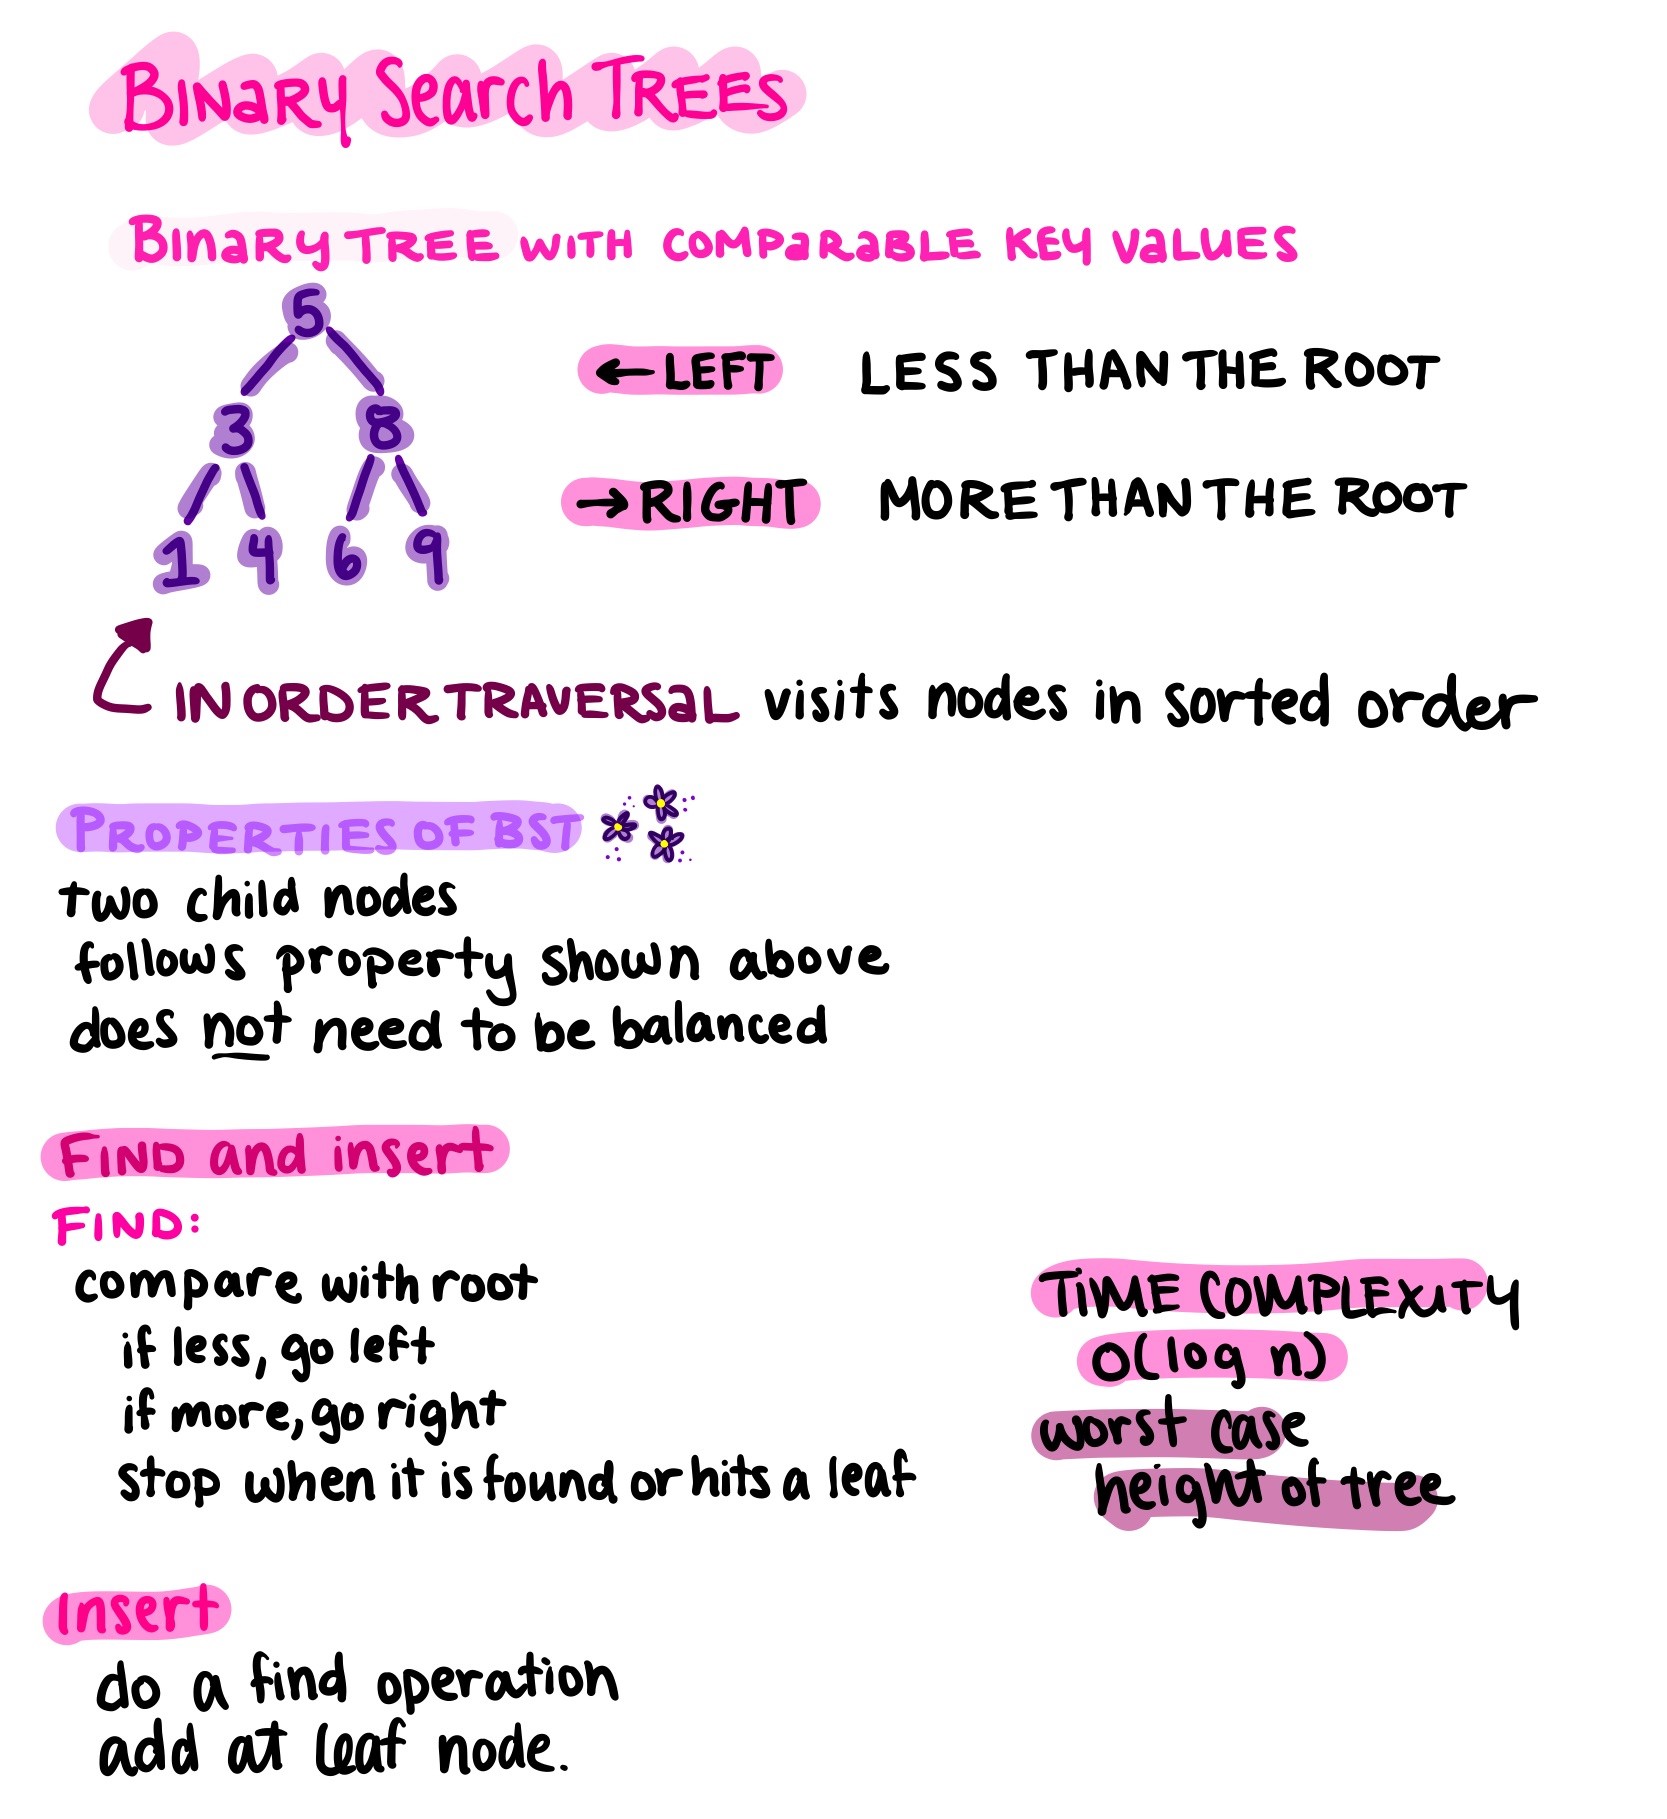 Binary Search Trees
Binary Tree with comparable key values
5
3 8
1 4 6 9
← LEFT LESS THAN THE ROOT
→ RIGHT MORE THAN THE ROOT
IN ORDER TRAVERSAL visits nodes in sorted order
PROPERTIES OF BST
two child nodes
follows property shown above
does not need to be balanced
FIND and insert
FIND:
compare with root
if less, go left
if more, go right
stop when it is found or hits a leaf
TIME COMPLEXITY
O(log n)
worst case
height of tree
Insert
do a find operation
add at leaf node.